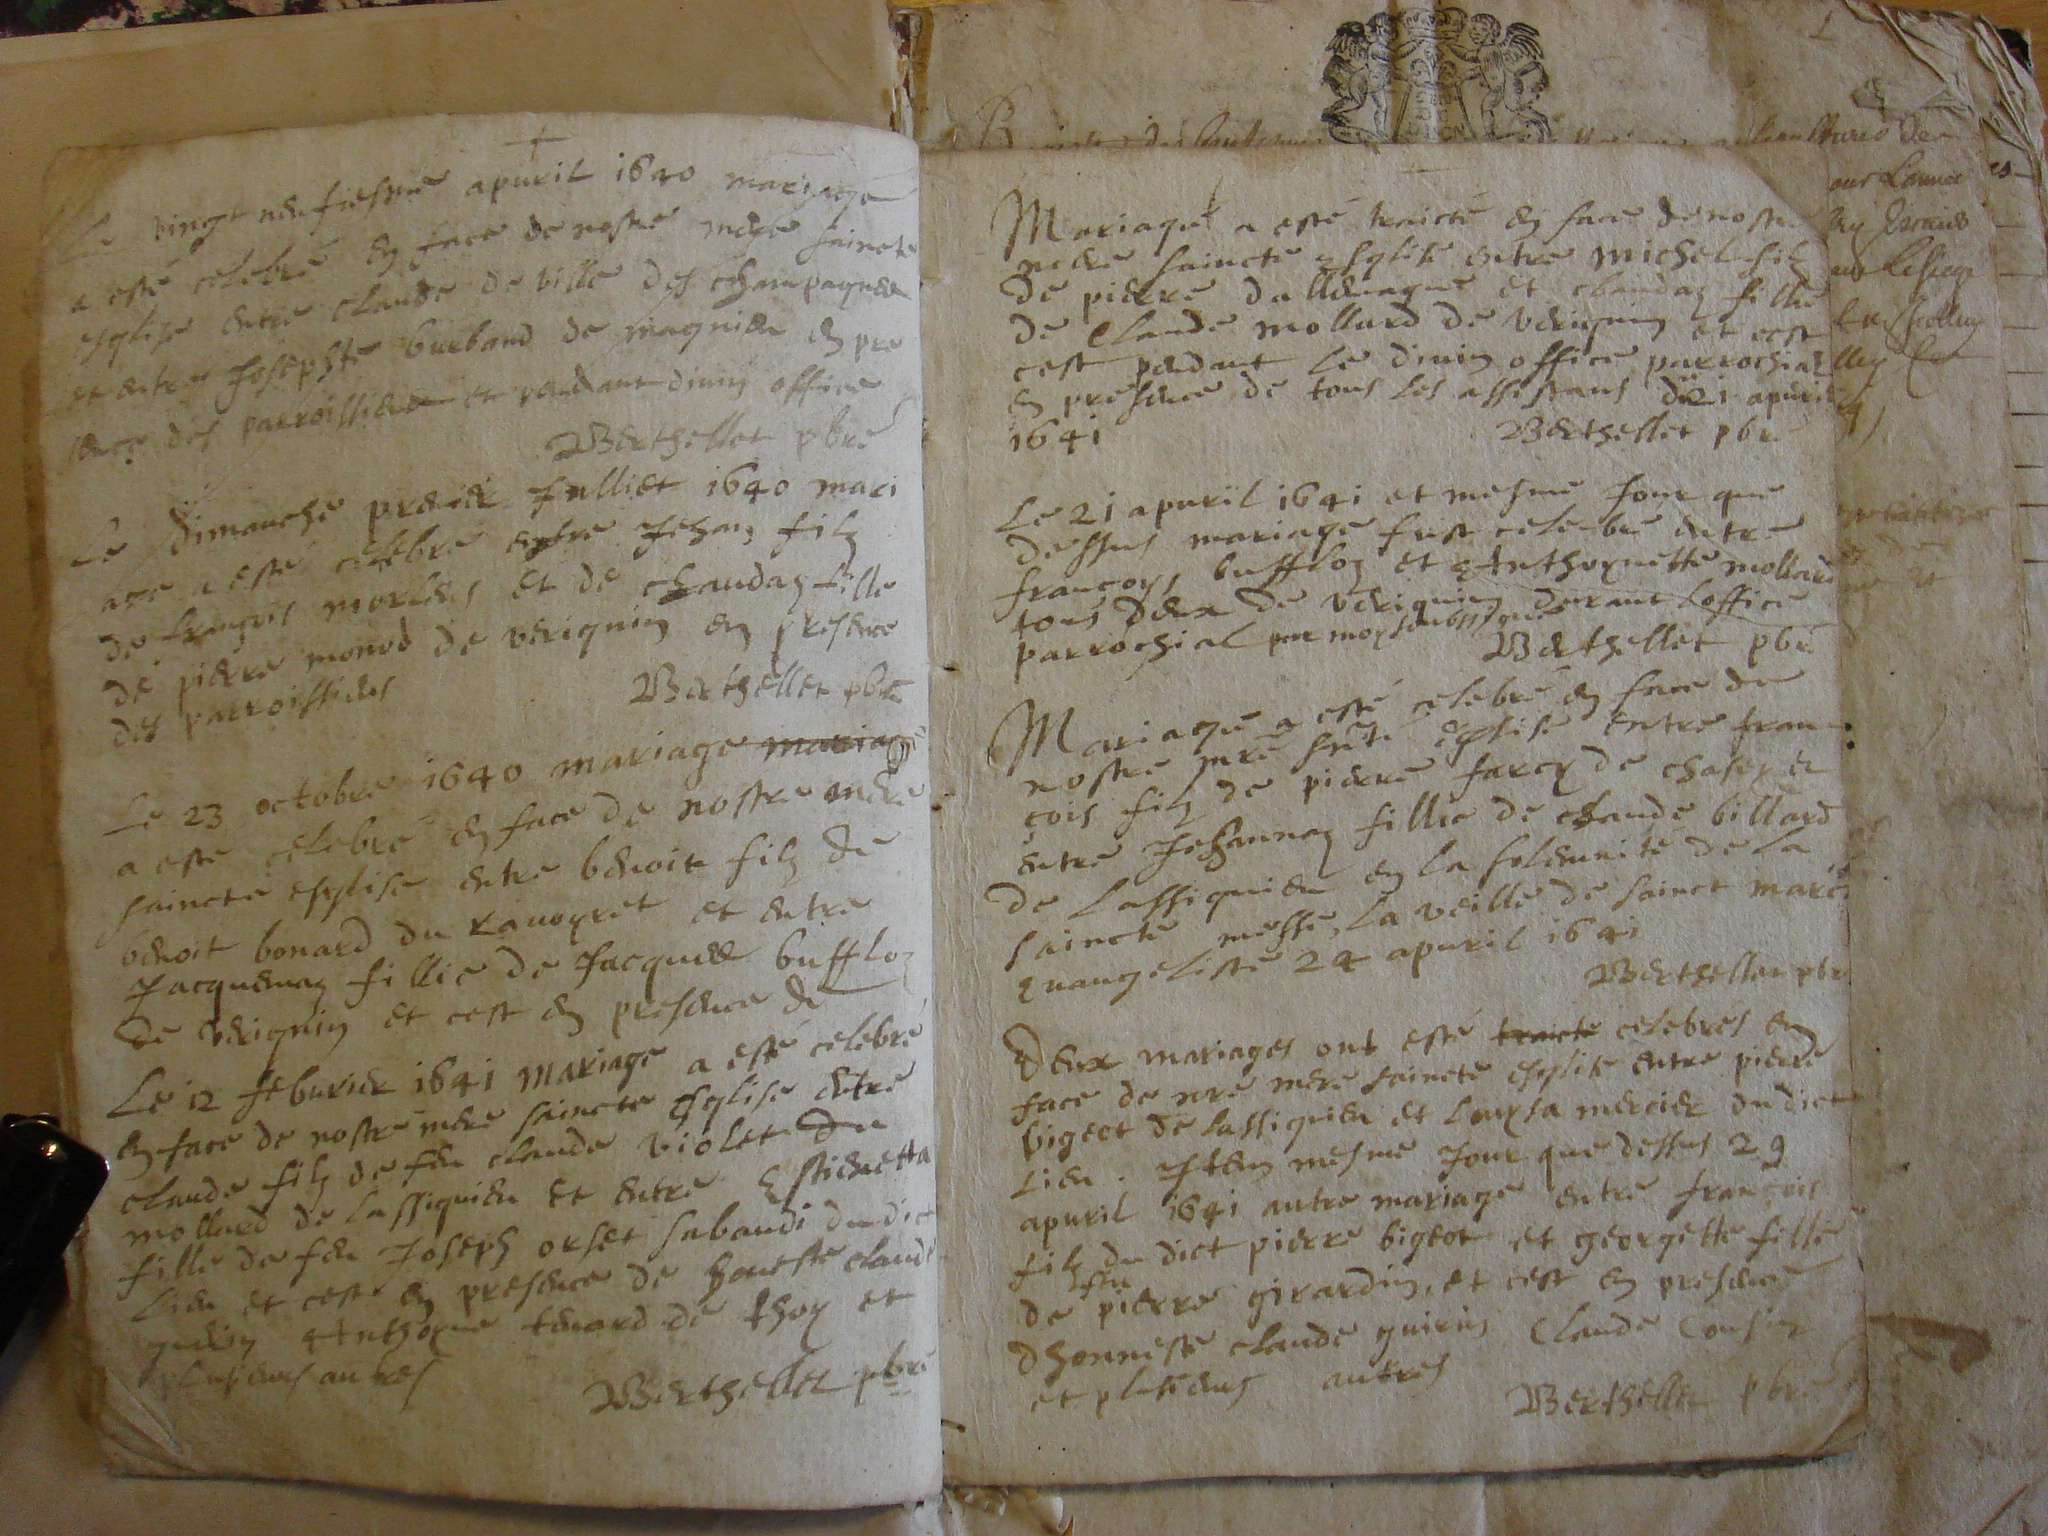 Le vingt neufiesme apuril 1640 mariage
a esté celebré en face de nostre mere saincte
esglise entre claude de ville des champagnes
et entre Josephte burband de magnieu en pre
sence des parroissiens et pendant divin office
Berthellet pbre
Le dimanche premier Julliet 1640 mari
age a esté celebré entre Jehan filz
de françois morleus et de claudaz fille
de pierre monod de verignin en presence
des parroissiens
Berthellet pbre
Le 23 octobre 1640 mariage mariage
a esté celebré en face de nostre mere
saincte esglise entre benoit filz de
benoit bonard du ravoyret et entre
Jacquemaz fillie de Jacques buffloz
de verignin et cest en presence de
Le 12 feburier 1641 mariage a esté celebré
en face de nostre mere saincte Esglise entre
claude filz de feu claude violet du
mollard de lassignieu et entre Estienetta
fille de feu Joseph orset sabaudi du dict
lieu et cest en presence de honeste claude
Anthoyne tenard de thoy et
plusieurs autres
Berthellet pbre
Mariage a esté traicté en face de nostre
mere saincte esglise entre michel filz
de pierre dallemagne et claudaz fillie
de Claude mollard de verignin et cest
cest pendant le divin office parrochial
en presence de tous les assistans du 21 apuril
1641
Berthellet pbre
Le 21 apuril 1641 et mesme Jour que
dessus mariage fust celebré entre
françoys buffloz et Anthoynette mollard
tous deux de verignin durant loffice
parrochial par moy soubsigné
Berthellet pbre
Mariage a esté celebré en face de
nostre mre sncte église entre fran
çois filz de pierre farcy de chasey et
entre Jehannaz fillie de claude billard
de Lassignieu en la solemnité de la
saincte messe, la veille de sainct marc
evangeliste 24 apuril 1641
Berthellet pbre
Deux mariages ont esté traicté celebres en
face de nre mere saincte esglise entre pierre
bigeot de lassignieu et loysa mercier du dict
lieu. Item mesme Jour que dessus 29
apuril 1641 autre mariage entre françois
filz du dict pierre bigeot et georgette fille
feu
de pierre girardin, et cest en presence
dhonneste claude guirin Claude Cousin
et plusieurs autres
Berthellet pbre